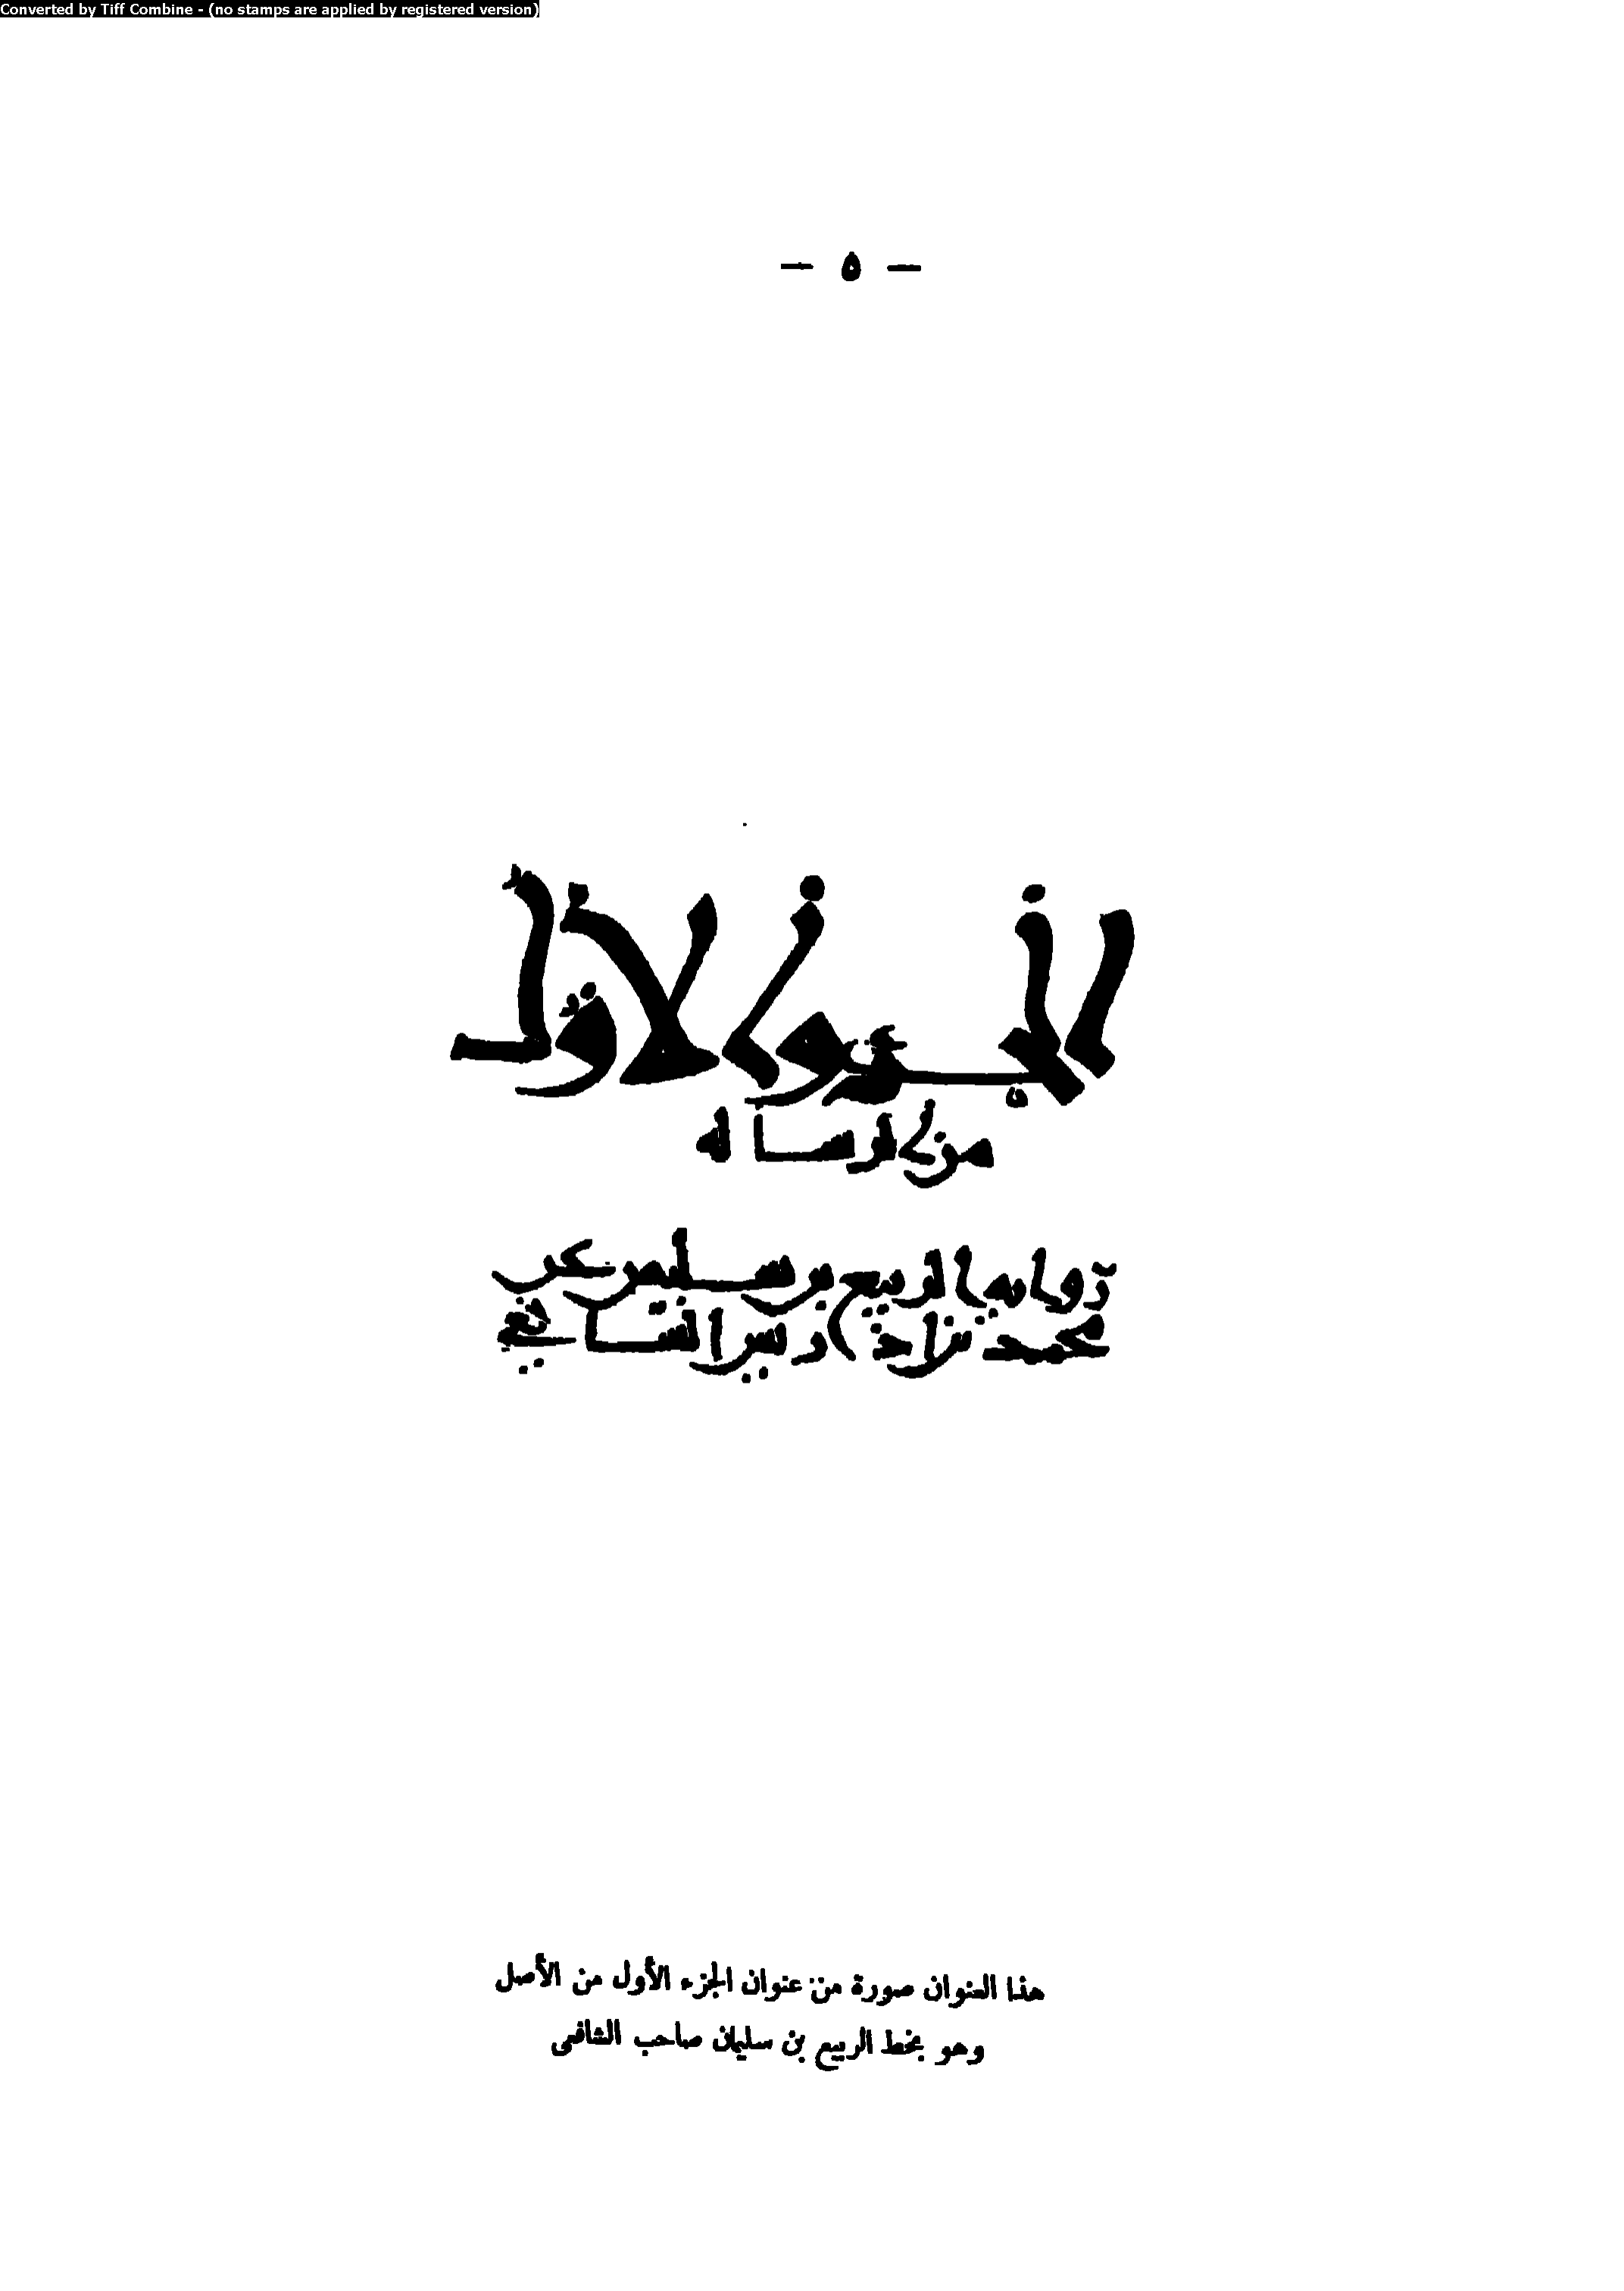 Converted by Tiff Combine - (no stamps are applied by registered version)
— ٥ —
الجزو الاول
من الرساله
روايه الربيع بن سليمن عن
محمد بن ادريس الشافعي
هذا العنوان صورة من عنوان الجزء الأول من الأصل
وهو بخط الربيع بن سليمان صاحب الشافعى